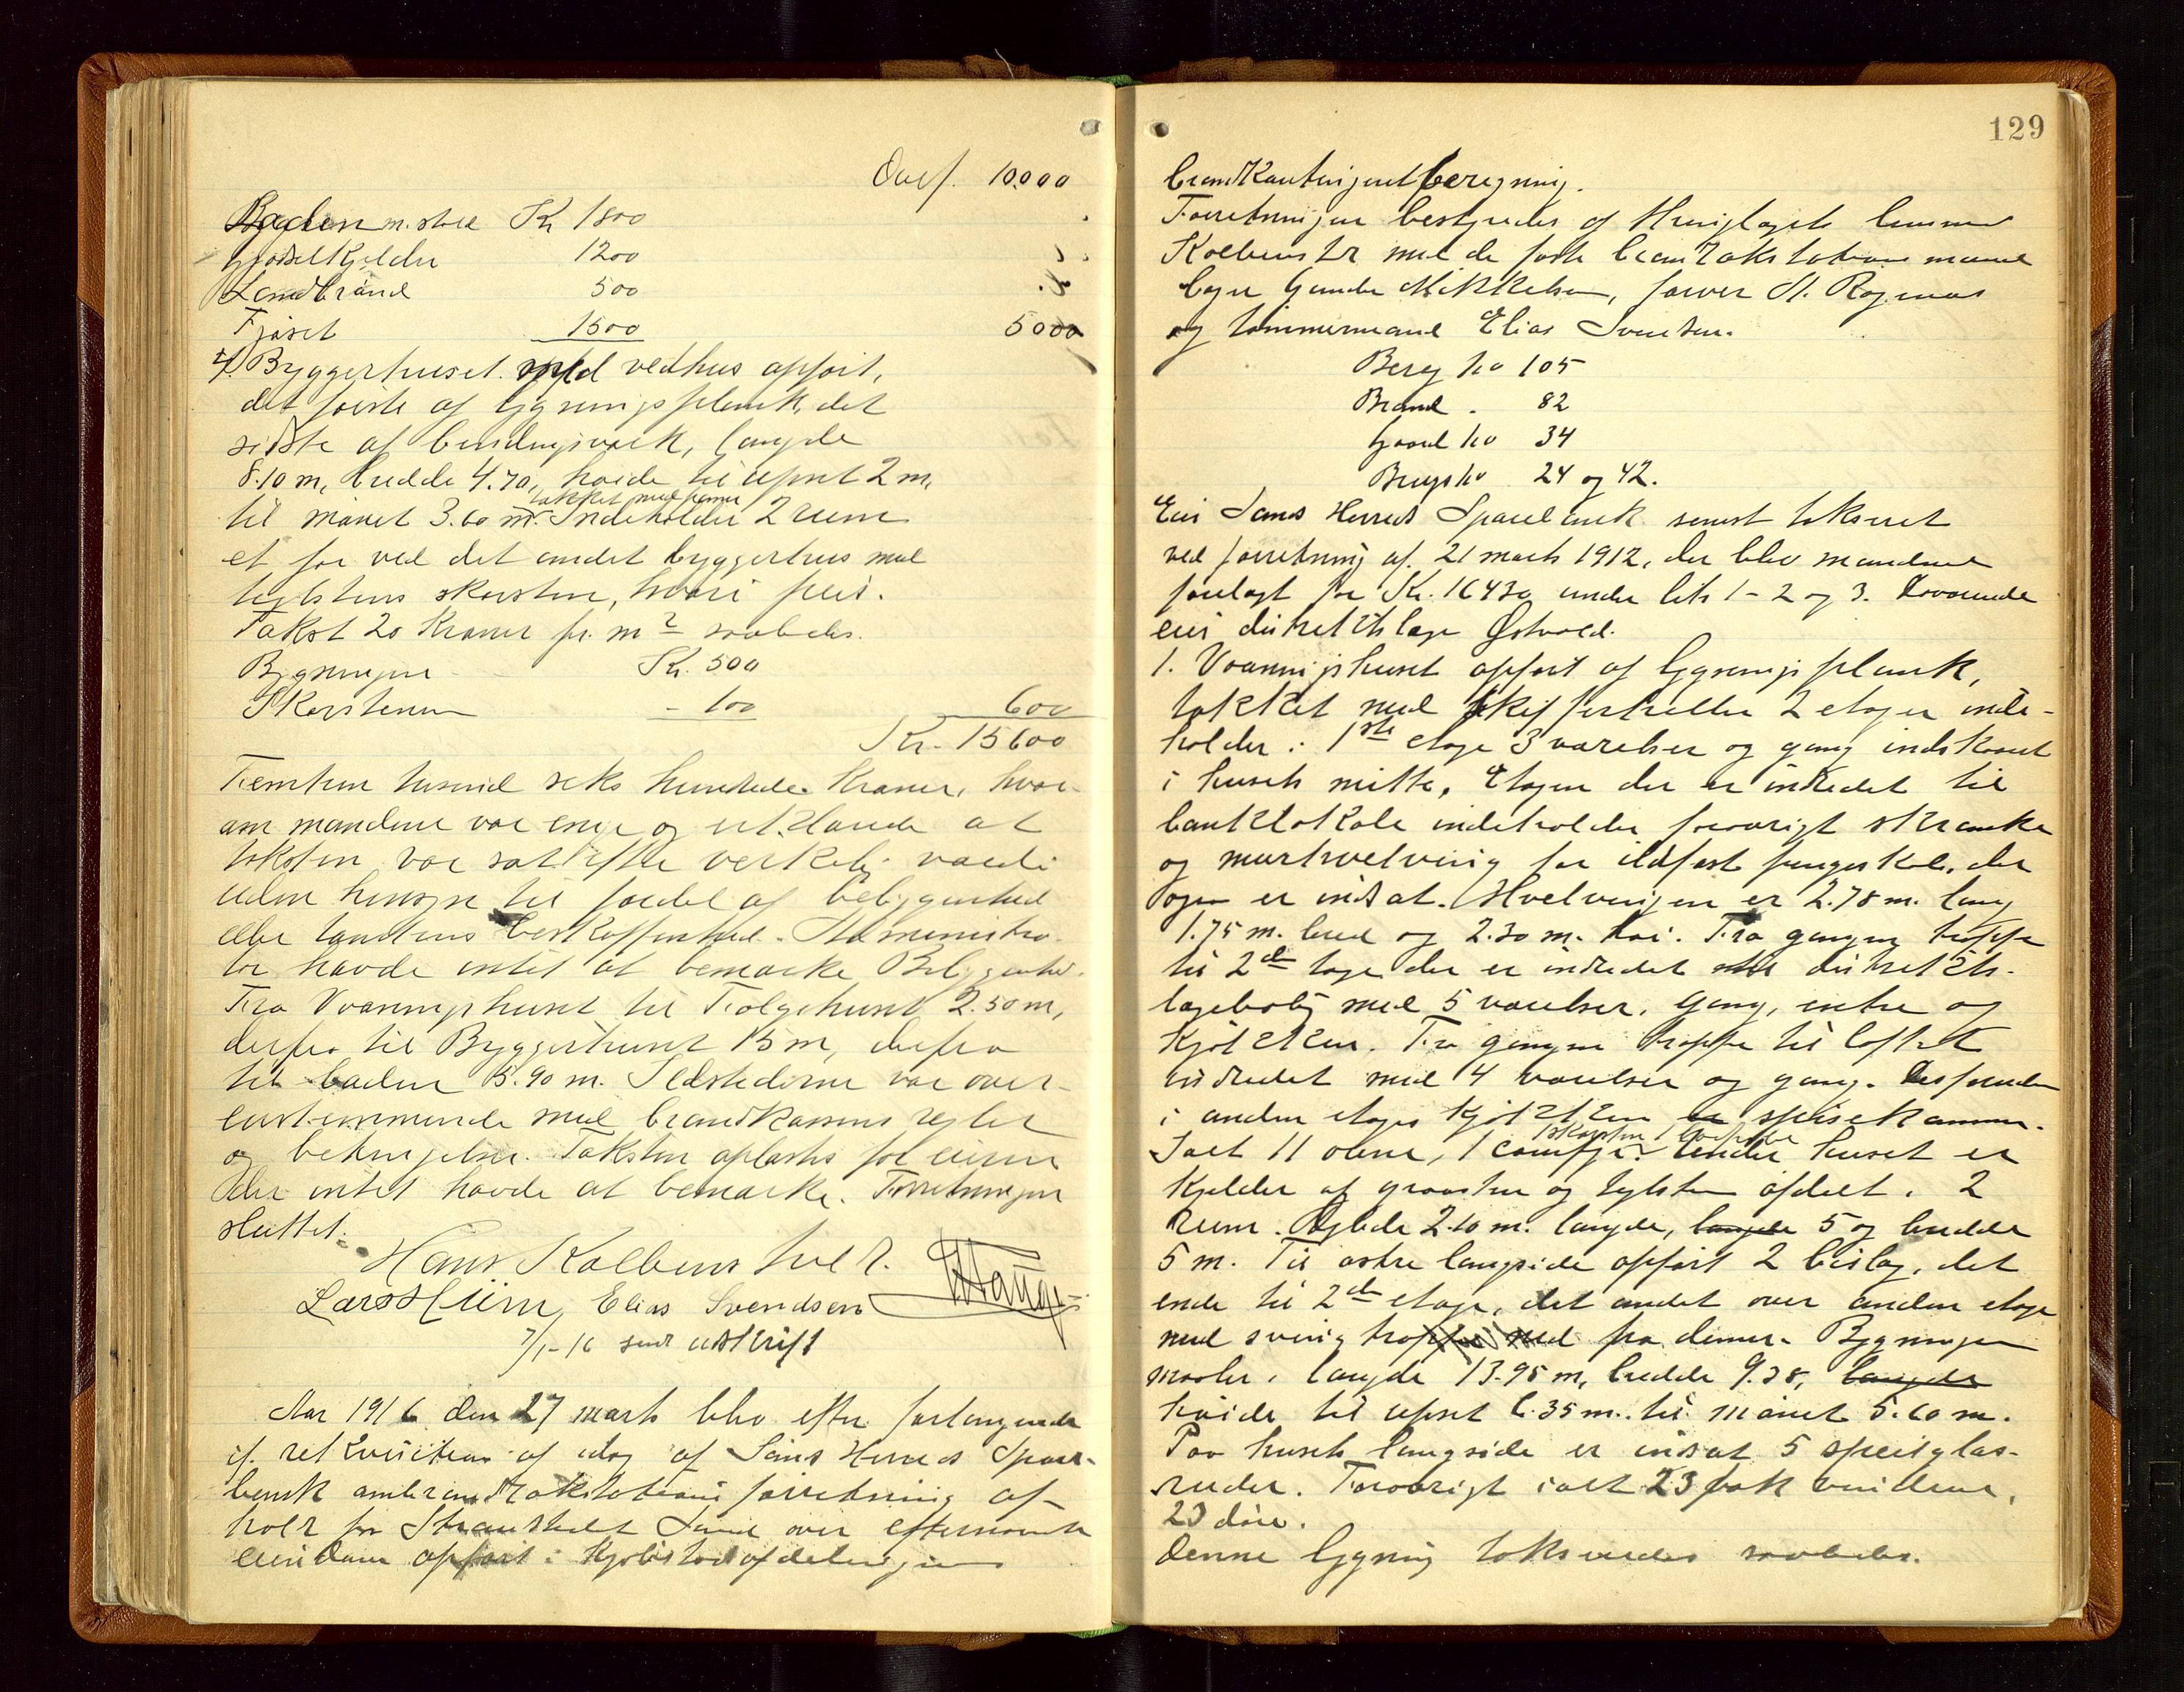 Overf. 10.000
Laden m. stald Kr 1800
Gjødselkjelder 1200
Landbrand 500
Fjøset 1500 5000
4. Byggerhuset med vedhus opført,
det første af bygningsplank, det
sidste af bindingsverk, længde
8.10 m, bredde 4.70, høide til ufset 2 m,
takket med panner
til mønet 3.60 m. Indeholder 2 rum
et for ved det andet byggerhus med
teglstens skorsten, hvori peis.
Takst 20 Kroner pr. m² saaledes.
Bygningen Kr. 500
Skorstenen - 100 600
Kr. 15600
Femten tusind seks hundrede Kroner, hvor-
om mændene var enige og erklærede at
taksten var sat efter verkelig værdi
uden hensyn til fordel af beliggenhed
eller tomtens beskaffenhed. Administra-
tor havde intet at bemærke. Beliggenhed.
Fra Vaaningshuset til Følgehuset 2.50 m,
derfra til Byggerhuset 15 m, derfra
til laden 15.90 m. Ildstederne var over-
ensstemmende med brandkassens regler
og betingelser. Taksten oplæstes for eieren
der intet havde at bemærke. Forretningen
sluttet.
Hans Kolbenstvedt.
Lars Hiim, Elias Svendsen
7/1-16 sendt utskrift
Aar 1916 den 27 marts blev efter forlangende
if. rekvisition af idag af Sans Herreds Spare-
bank ombrandtakstationsforretning af-
holdt paa Strandstedet Sand over efternævnte
eiendom opført i Kjøbstadafdelingen
129
brandkontingentberegning.
Forretningen bestyredes af
Kolbenstvedt med de faste brandtakstationsmænd
Gunder Mikkelsen, farver H. Rognaas
og tømmermand Elias Svendsen.
Berg No 105
Brand . 82
Gaard No 34
Brugs No 24 og 42.
Eier Sands Herreds Sparebank senest takseret
ved forretning af. 21 marts 1912, der blev mændene
forelagt for Kr. 16430 under litr 1 - 2 og 3. Boende
eier distriktslæge Østvold.
1. Vaaningshuset opført af bygningsplank,
takket med skifertræller 2 etager inde-
holder: 1ste etage 3 værelser og gang indskaaret
i husets midte, Etagen der er indredet til
banklokale indeholder forøvrigt skranke
og murhvelving for ildfast pengeskab, der
ogsaa er indsat. Hvelvingen er 2.78 m. lang
1.75 m. bred og 2.30 m. høi. Fra gangen trappe
til 2den etage der er indredet til distrikts-
lægebolig med 5 værelser, gang, entre og
kjøkken. Fra gangen trappe til loftet
indredet med 4 værelser og gang. Desforuden
i anden etages kjøkken er spisekammer.
1 skorsten
Ialt 11 ovne, 1 comfyr. Under huset er
kjelder af graasten og teglsten afdelt i 2
rum. Dybde 2.10 m. længde, længde 5 og bredde
5 m. Til østre langside opført 2 bislag, det
ene til 2den etage, det andet over anden etage
med sving trappe ned fra denne. Bygningen
maaler i længde 13.95 m, bredde 9.38, længde
høide til ufset 6.35 m. til mønet 5.60 m.
Paa husets langside er indsat 5 speilglas-
ruder. Forøvrigt ialt 23 fak vinduer,
23 døre.
Denne bygning takseredes saaledes.